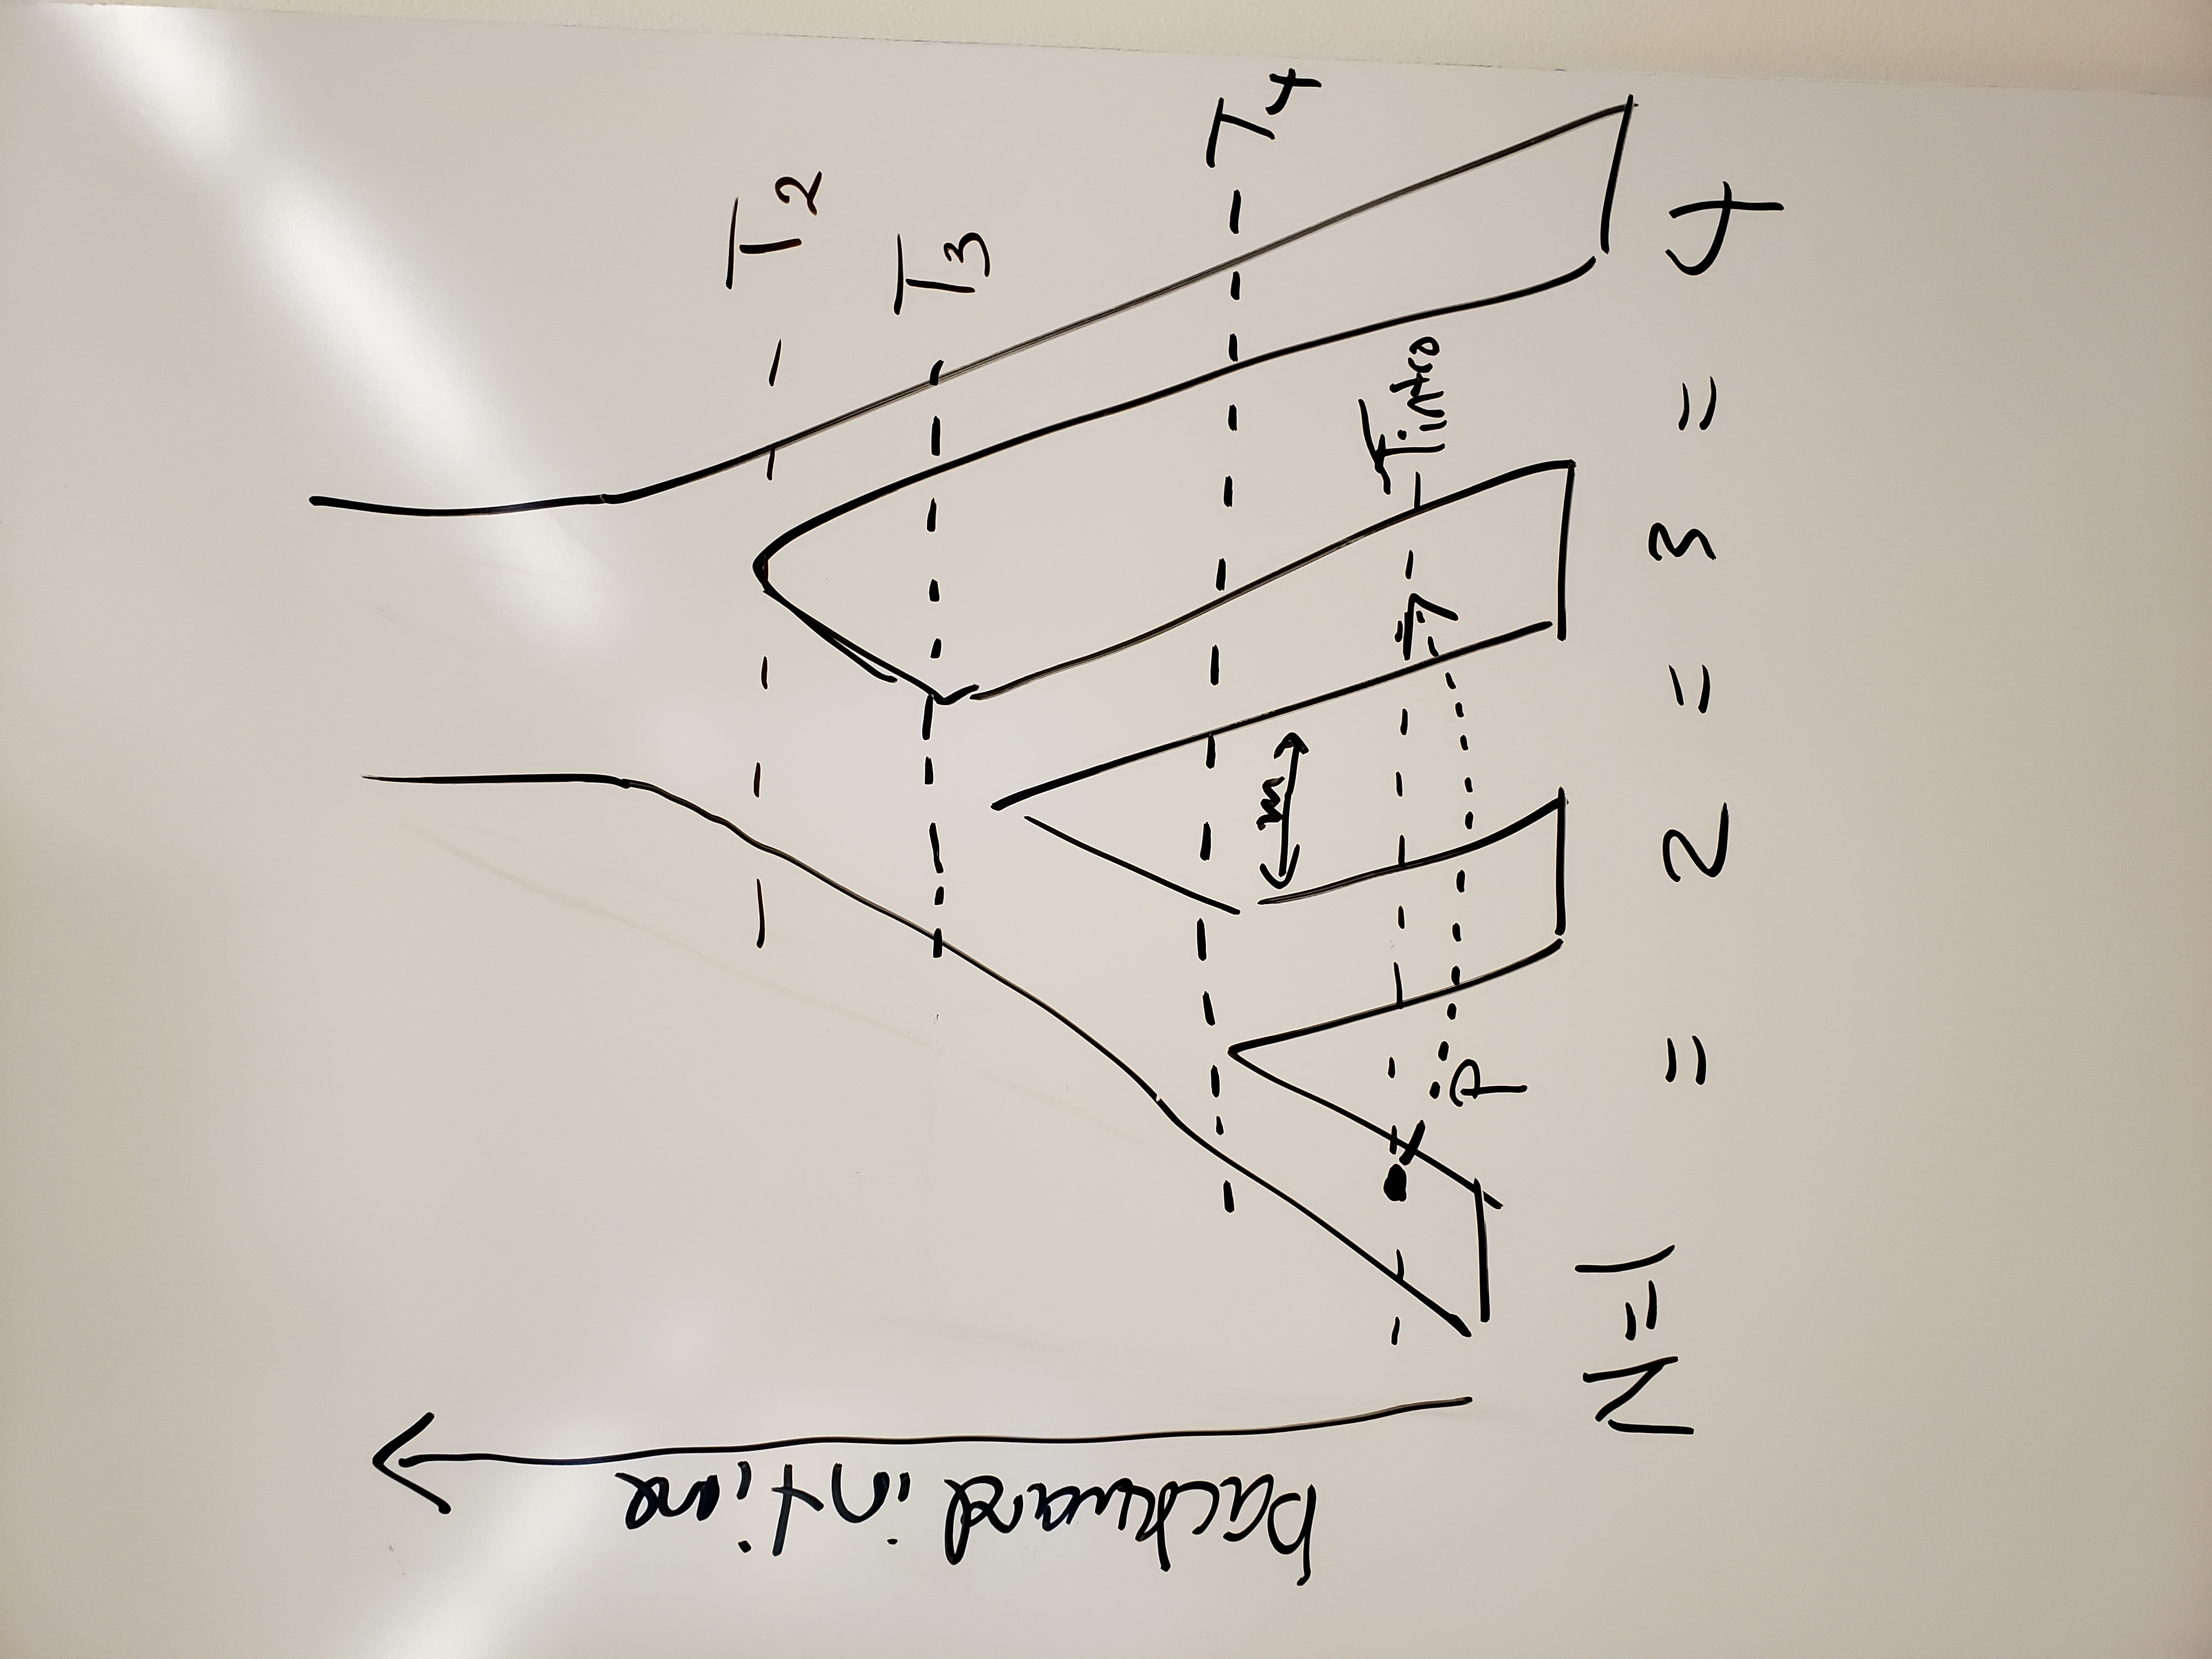 backward in time
T2
T3
T4
m
Tintro
p
N=1 = 2 = 3 = 4